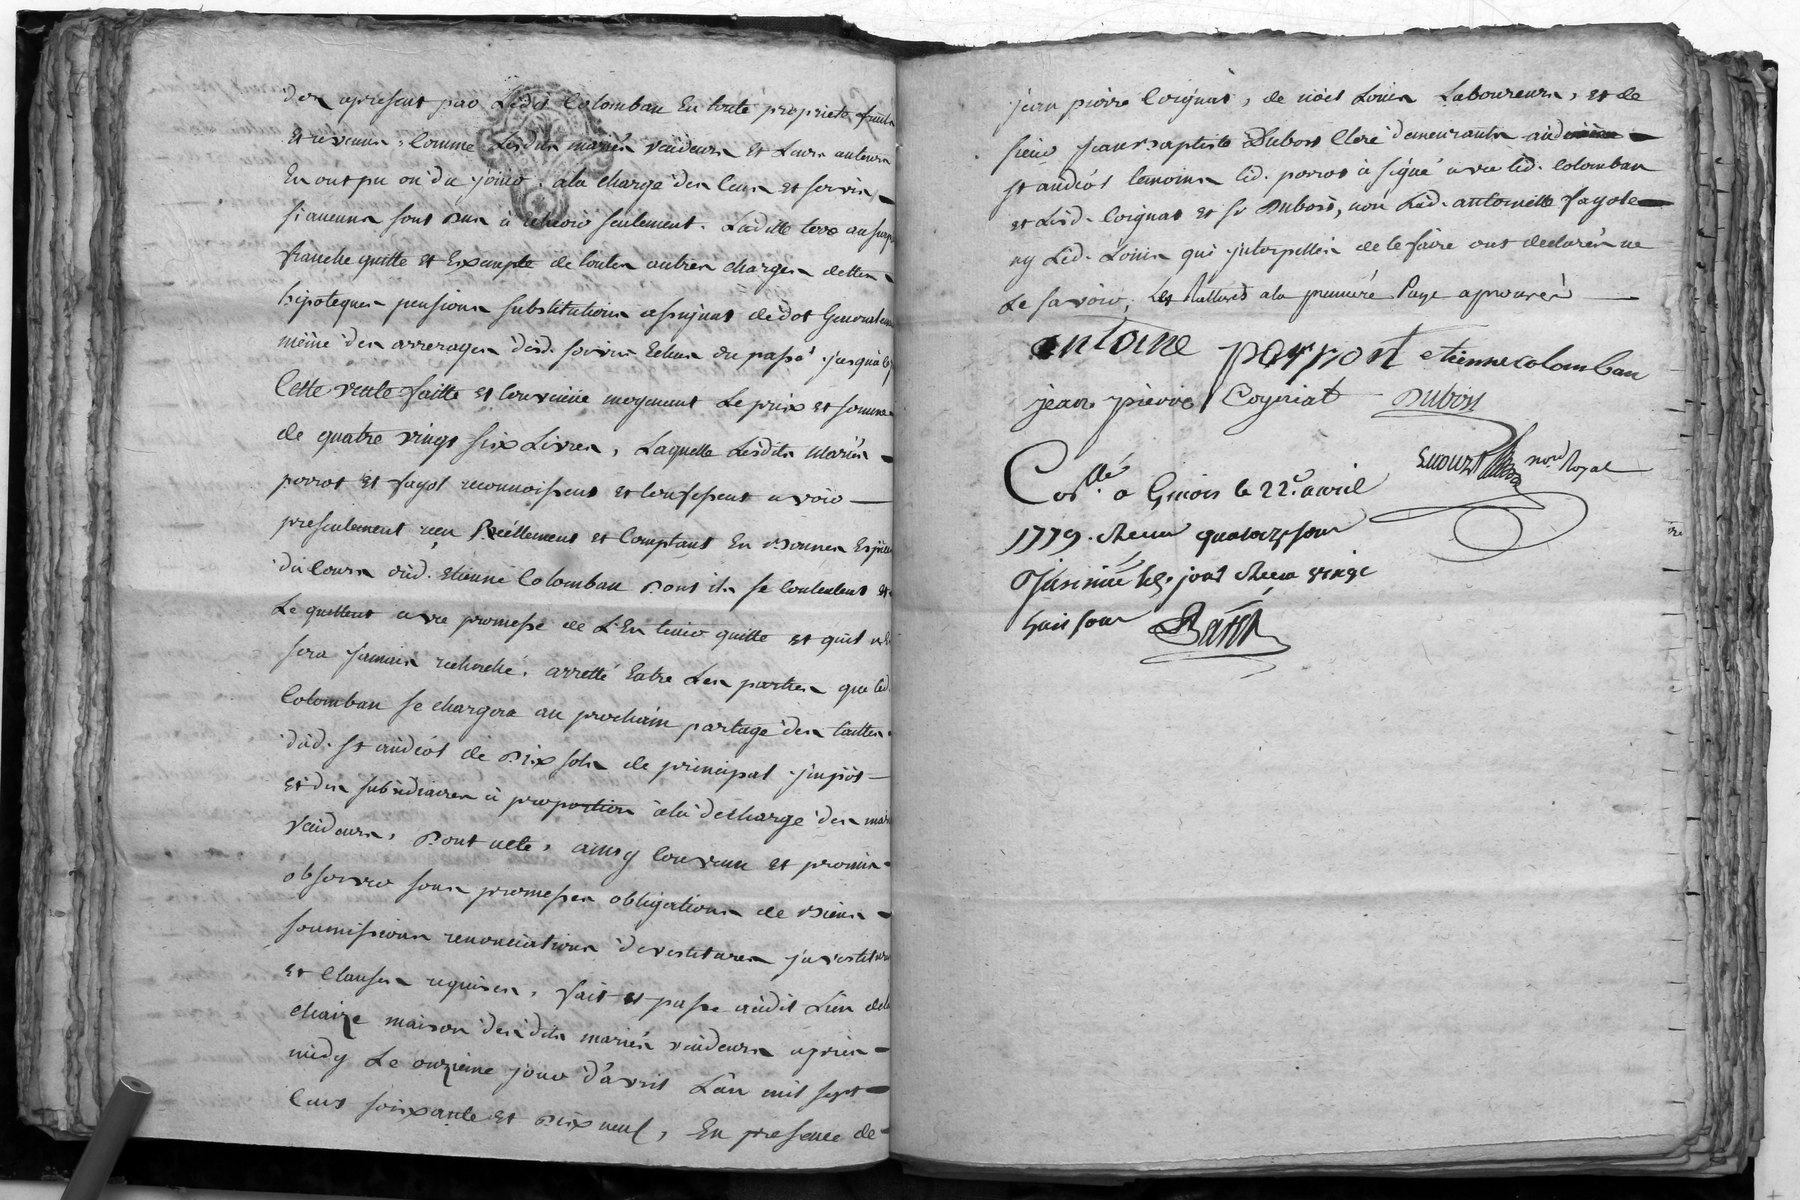 des apresent par Ledit Colomban En toute proprieté fruits
Et revenus, Comme Lesdits mariés vendeurs Et Leurs auteurs
En ont pu ou du jouir, a la charge des Cens Et servis,
si aucuns sont Dus à echeoir seulement. Laditte terre au surplus
franche quitte Et Exempte de toutes autres charges dettes
hipoteques pensions substitutions assignat de dot Generalement
même des arrerages desd. servis Echus du passé jusqu'a ce jour
Cette vente faitte Et Convenüe moyenant Le prix Et somme
de quatre vingt six Livres, Laquelle Lesdits Mariés
perrot Et fagot reconnoissent et Confessent avoir
presentement reçu Réellement et Comptant En Bonnes Espèces
du Cours dud. Etienne Colomban Dont ils se Contentent et
Le quittent avec promesse de L'En tenir quitte et qu'il n'en
sera jamais recherché. arretté Entre Les parties que led.
Colomban se chargera au prochain partage des tailles
dud. St andéol de Dix sols de principal jmpôt
et des subsidiaires à proportion à la decharge des mariés
vendeurs, Dont acte, ainsy Convenu et promis
observer sous promesses obligations de Biens
soumissions renonciations devestitures jnvestitures
et Clauses requises, fait et passé audit Lieu de la
chaize maison desdits mariés vendeurs après
midy Le onzieme jour d'avril L'an mil sept
Cent soixante et Dix neuf, En presence de
jean pierre Coignat, de noël Louis Laboureurs, et de
sieur jean Baptiste Dubost Clerc demeurants aud
St andéol temoins led. perrot à signé avec led. Colomban
et Lesd. Coignat et sr Dubost, non Lad. antoinette fagot
ny Led. Louis qui jnterpellés de le faire ont declarés ne
Le savoir, Les Rattures a la premiere Page aprouvés
antoine perrot etienne colomban
jean pierre Coyniat Dubost
not. Royal
Con.llé a le 22e. avril
1779. Recu quatorze sous
Jnsinué led. jour Recu vingt
huit sous